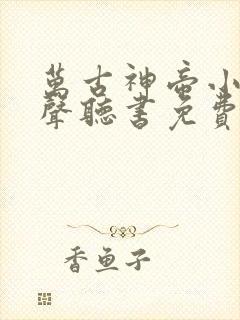 萬古神帝小
聲聽書免費
香魚子